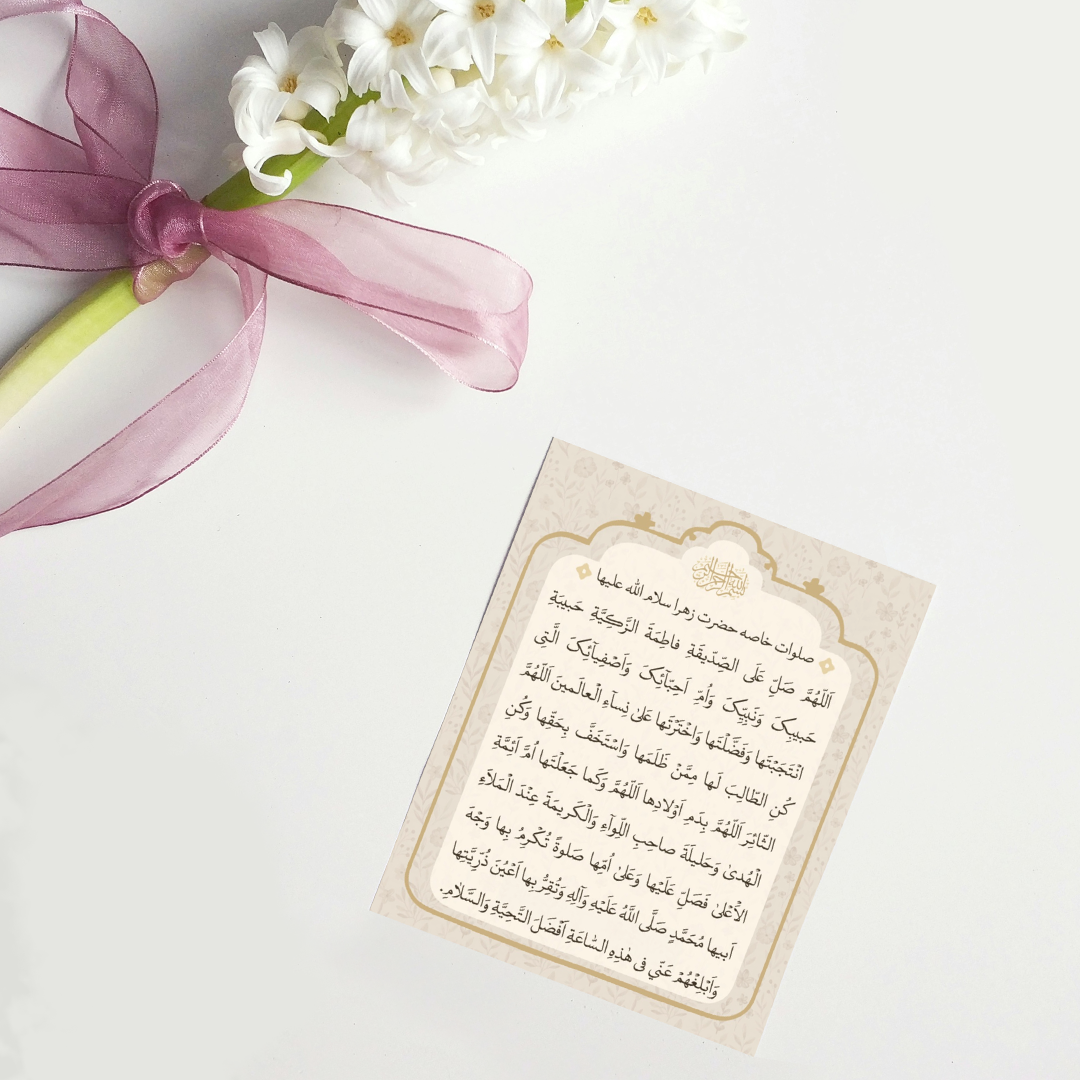 بسم الله الرحمن الرحیم
صلوات خاصه حضرت زهرا سلام الله علیها
اَللّهُمَّ صَلِّ عَلَی الصِّدّیقَةِ فاطِمَةَ الزَّکِیَّةِ حَبیبَةِ
حَبیبِکَ وَنَبِیِّکَ وَاُمِّ اَحِبّآئِکَ وَاَصْفِیآئِکَ الَّتِی
انْتَجَبْتَها وَفَضَّلْتَها وَاخْتَرْتَها عَلیٰ نِسآءِ الْعالَمینَ اَللّهُمَّ
کُنِ الطّالِبَ لَها مِمَّنْ ظَلَمَها وَاسْتَخَفَّ بِحَقِّها وَکُنِ
الثّائِرَ اَللّهُمَّ بِدَمِ اَوْلادِها اَللّهُمَّ وَکَما جَعَلْتَها اُمَّ اَئِمَّةِ
الْهُدیٰ وَحَلیلَةَ صاحِبِ اللِّوآءِ وَالْکَریمَةَ عِنْدَ الْمَلَاَءِ
الْاَعْلیٰ فَصَلِّ عَلَیْها وَعَلیٰ اُمِّها صَلوةً تُکْرِمُ بِها وَجْهَ
اَبیها مُحَمَّدٍ صَلَّی اللَّهُ عَلَیْهِ وَآلِهِ وَتُقِرُّ بِها اَعْیُنَ ذُرِّیَّتِها
وَاَبْلِغْهُمْ عَنّی فی هٰذِهِ السّاعَةِ اَفْضَلَ التَّحِیَّةِ وَالسَّلامِ.